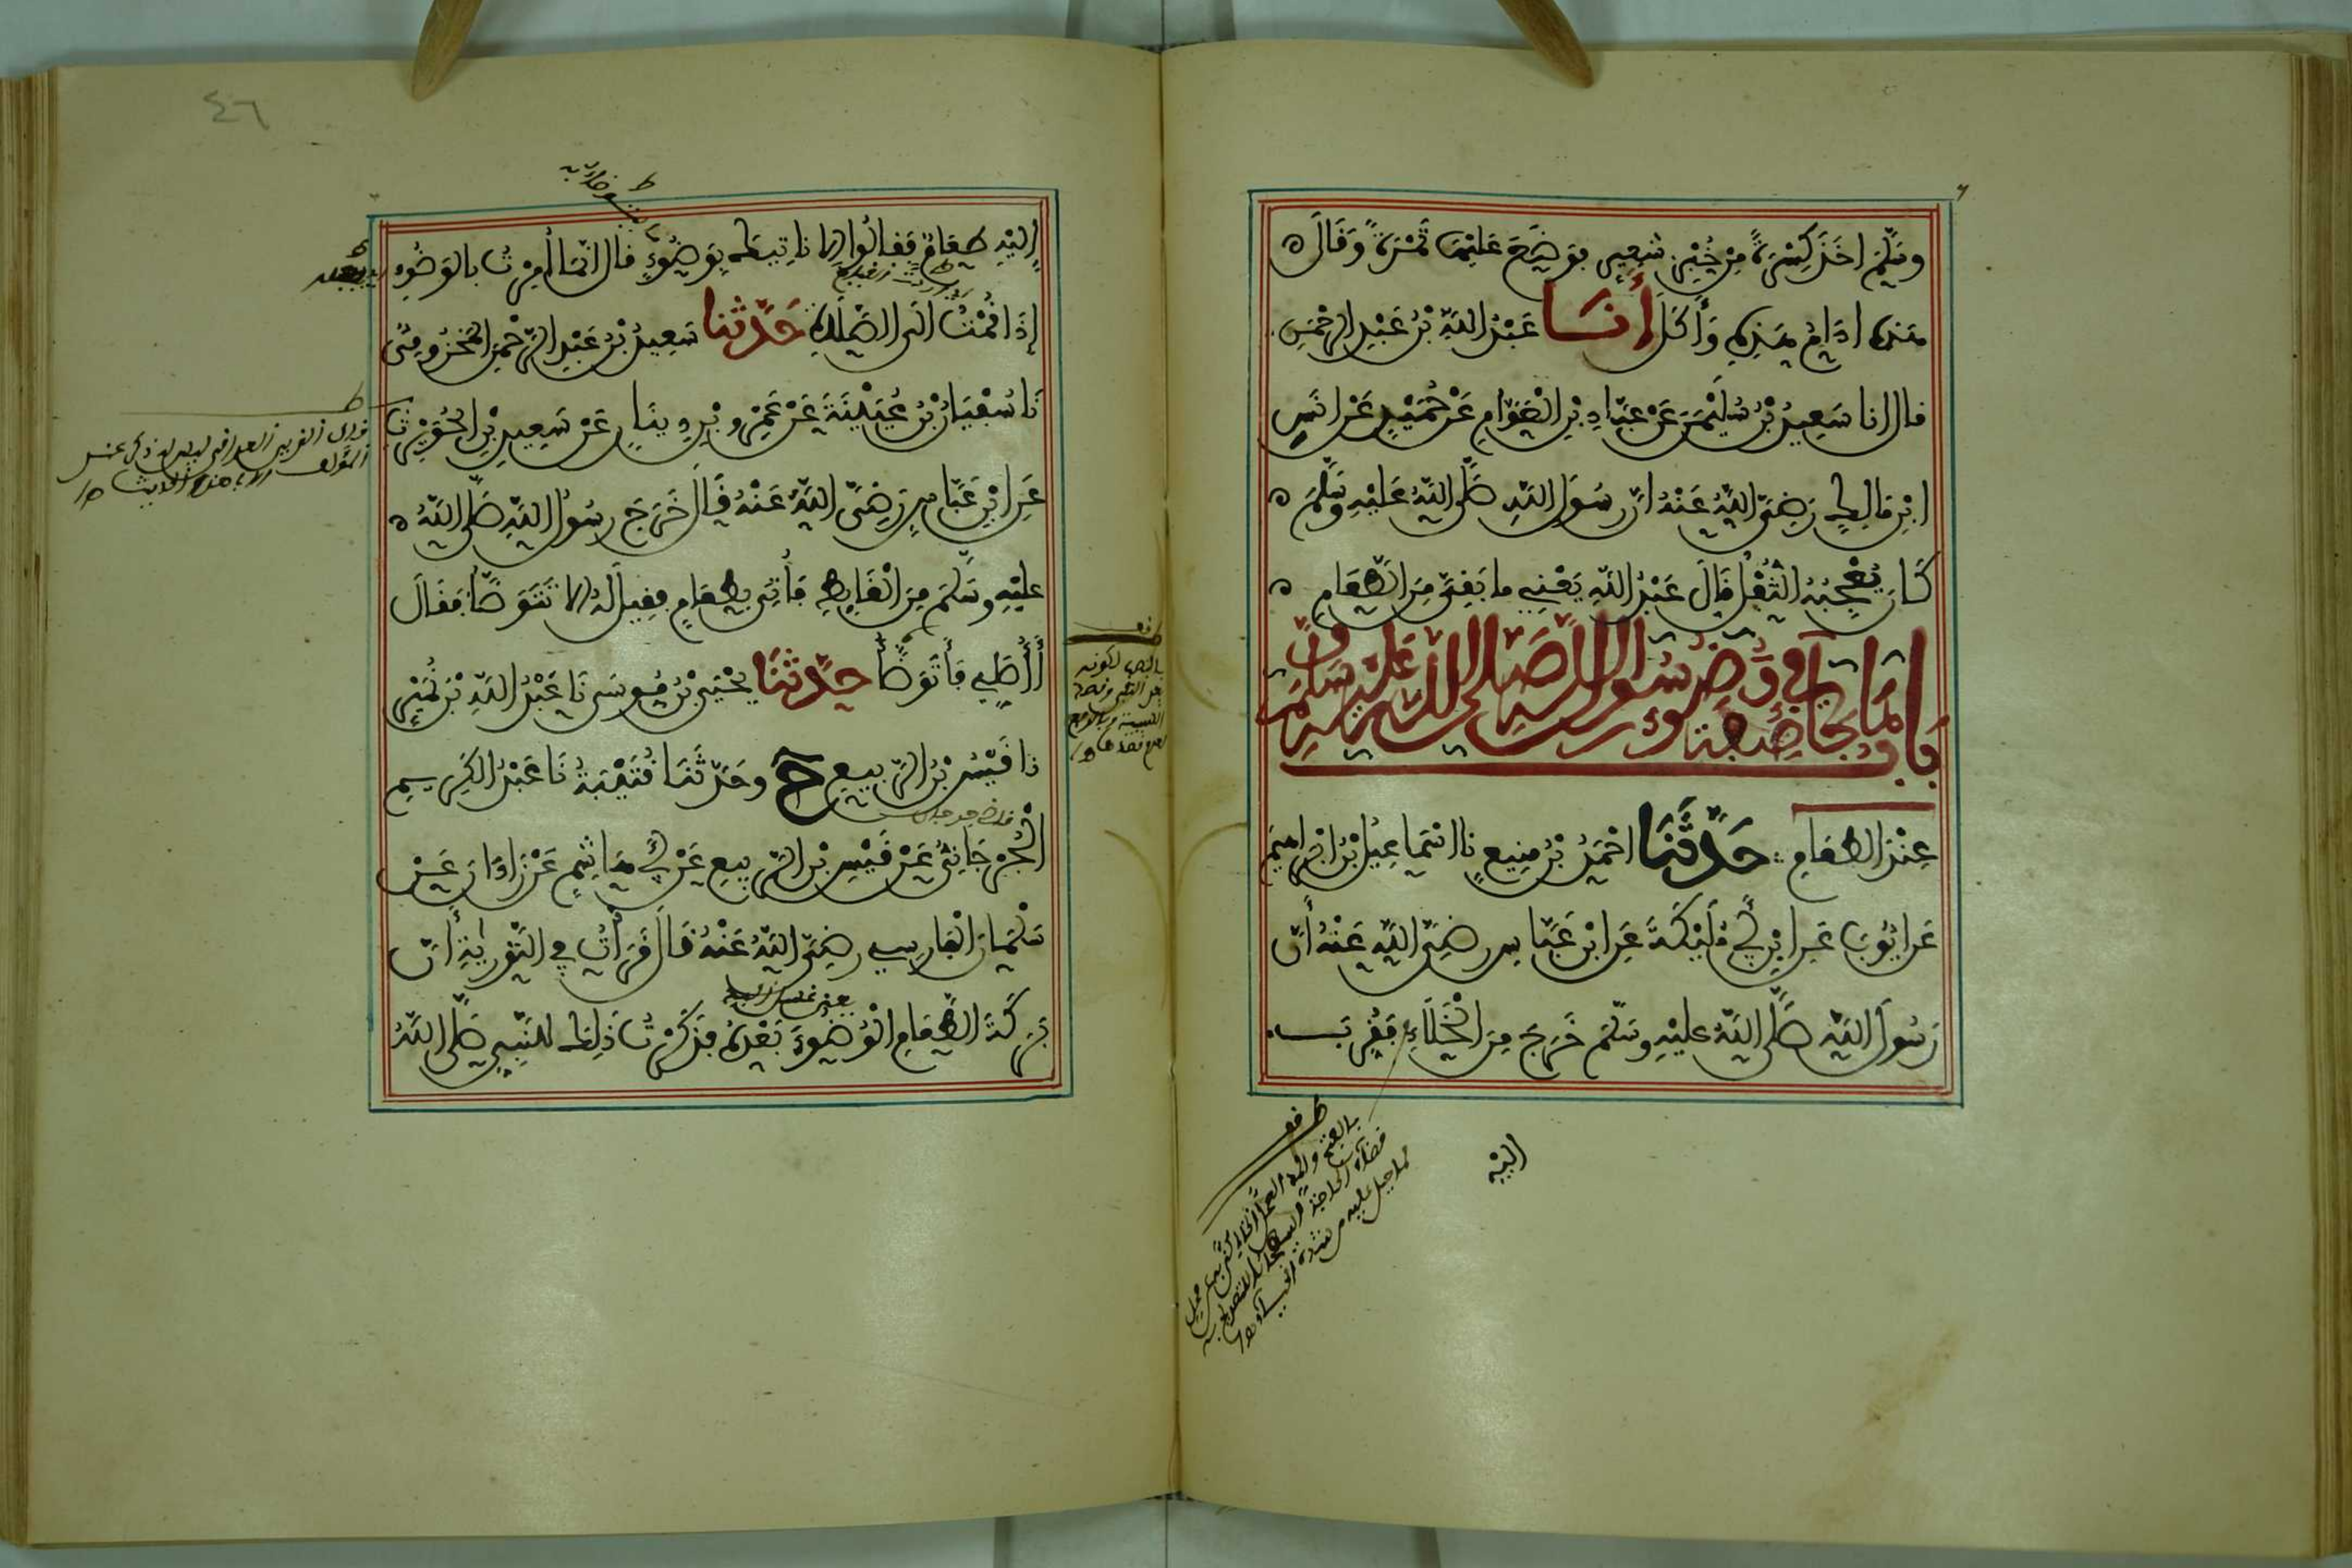 وسلم اخذ كسرة من خبز شعير فوضع عليها تمرة وقال
هذه ادام هذه وأكل أنا عبد الله بن عبد الرحمن
قال انا سعيد بن سليمن عن عباد بن العوام عن حميد عن انس
ابن مالك رضي الله عنه ان رسول الله صلى الله عليه وسلم
كان يعجبه الثفل قال عبد الله يعني ما بقي من الطعام
باب ما جاء في صفة وضوء رسول الله صلى الله عليه وسلم
عند الطعام حدثنا احمد بن منيع نا اسماعيل بن ابراهيم
عن ايوب عن ابن أبي مليكة عن ابن عباس رضي الله عنه أن
رسول الله صلى الله عليه وسلم خرج من الخلاء فقرب
اليه
٤٦
إليه طعام فقالوا الا ناتيك بوضوء قال انما أمرت بالوضوء
إذا قمت الى الصلاة حدثنا سعيد بن عبد الرحمن المخزومي
نا سفيان بن عيينة عن عمرو بن دينار عن سعيد بن الحويرث
عن ابن عباس رضي الله عنه قال خرج رسول الله صلى الله
عليه وسلم من الغايط فأتي بطعام فقيل له الا تتوضأ فقال
أأصلي فأتوضأ حدثنا يحيى بن موسى نا عبد الله بن نمير
نا قيس بن الربيع ح وحدثنا قتيبة نا عبد الكريم
الجرجاني عن قيس بن الربيع عن أبي هاشم عن زاذان عن
سلمان الفارسي رضي الله عنه قال قرأت في التورية أن
بركة الطعام الوضوء بعده فذكرت ذلك للنبي صلى الله